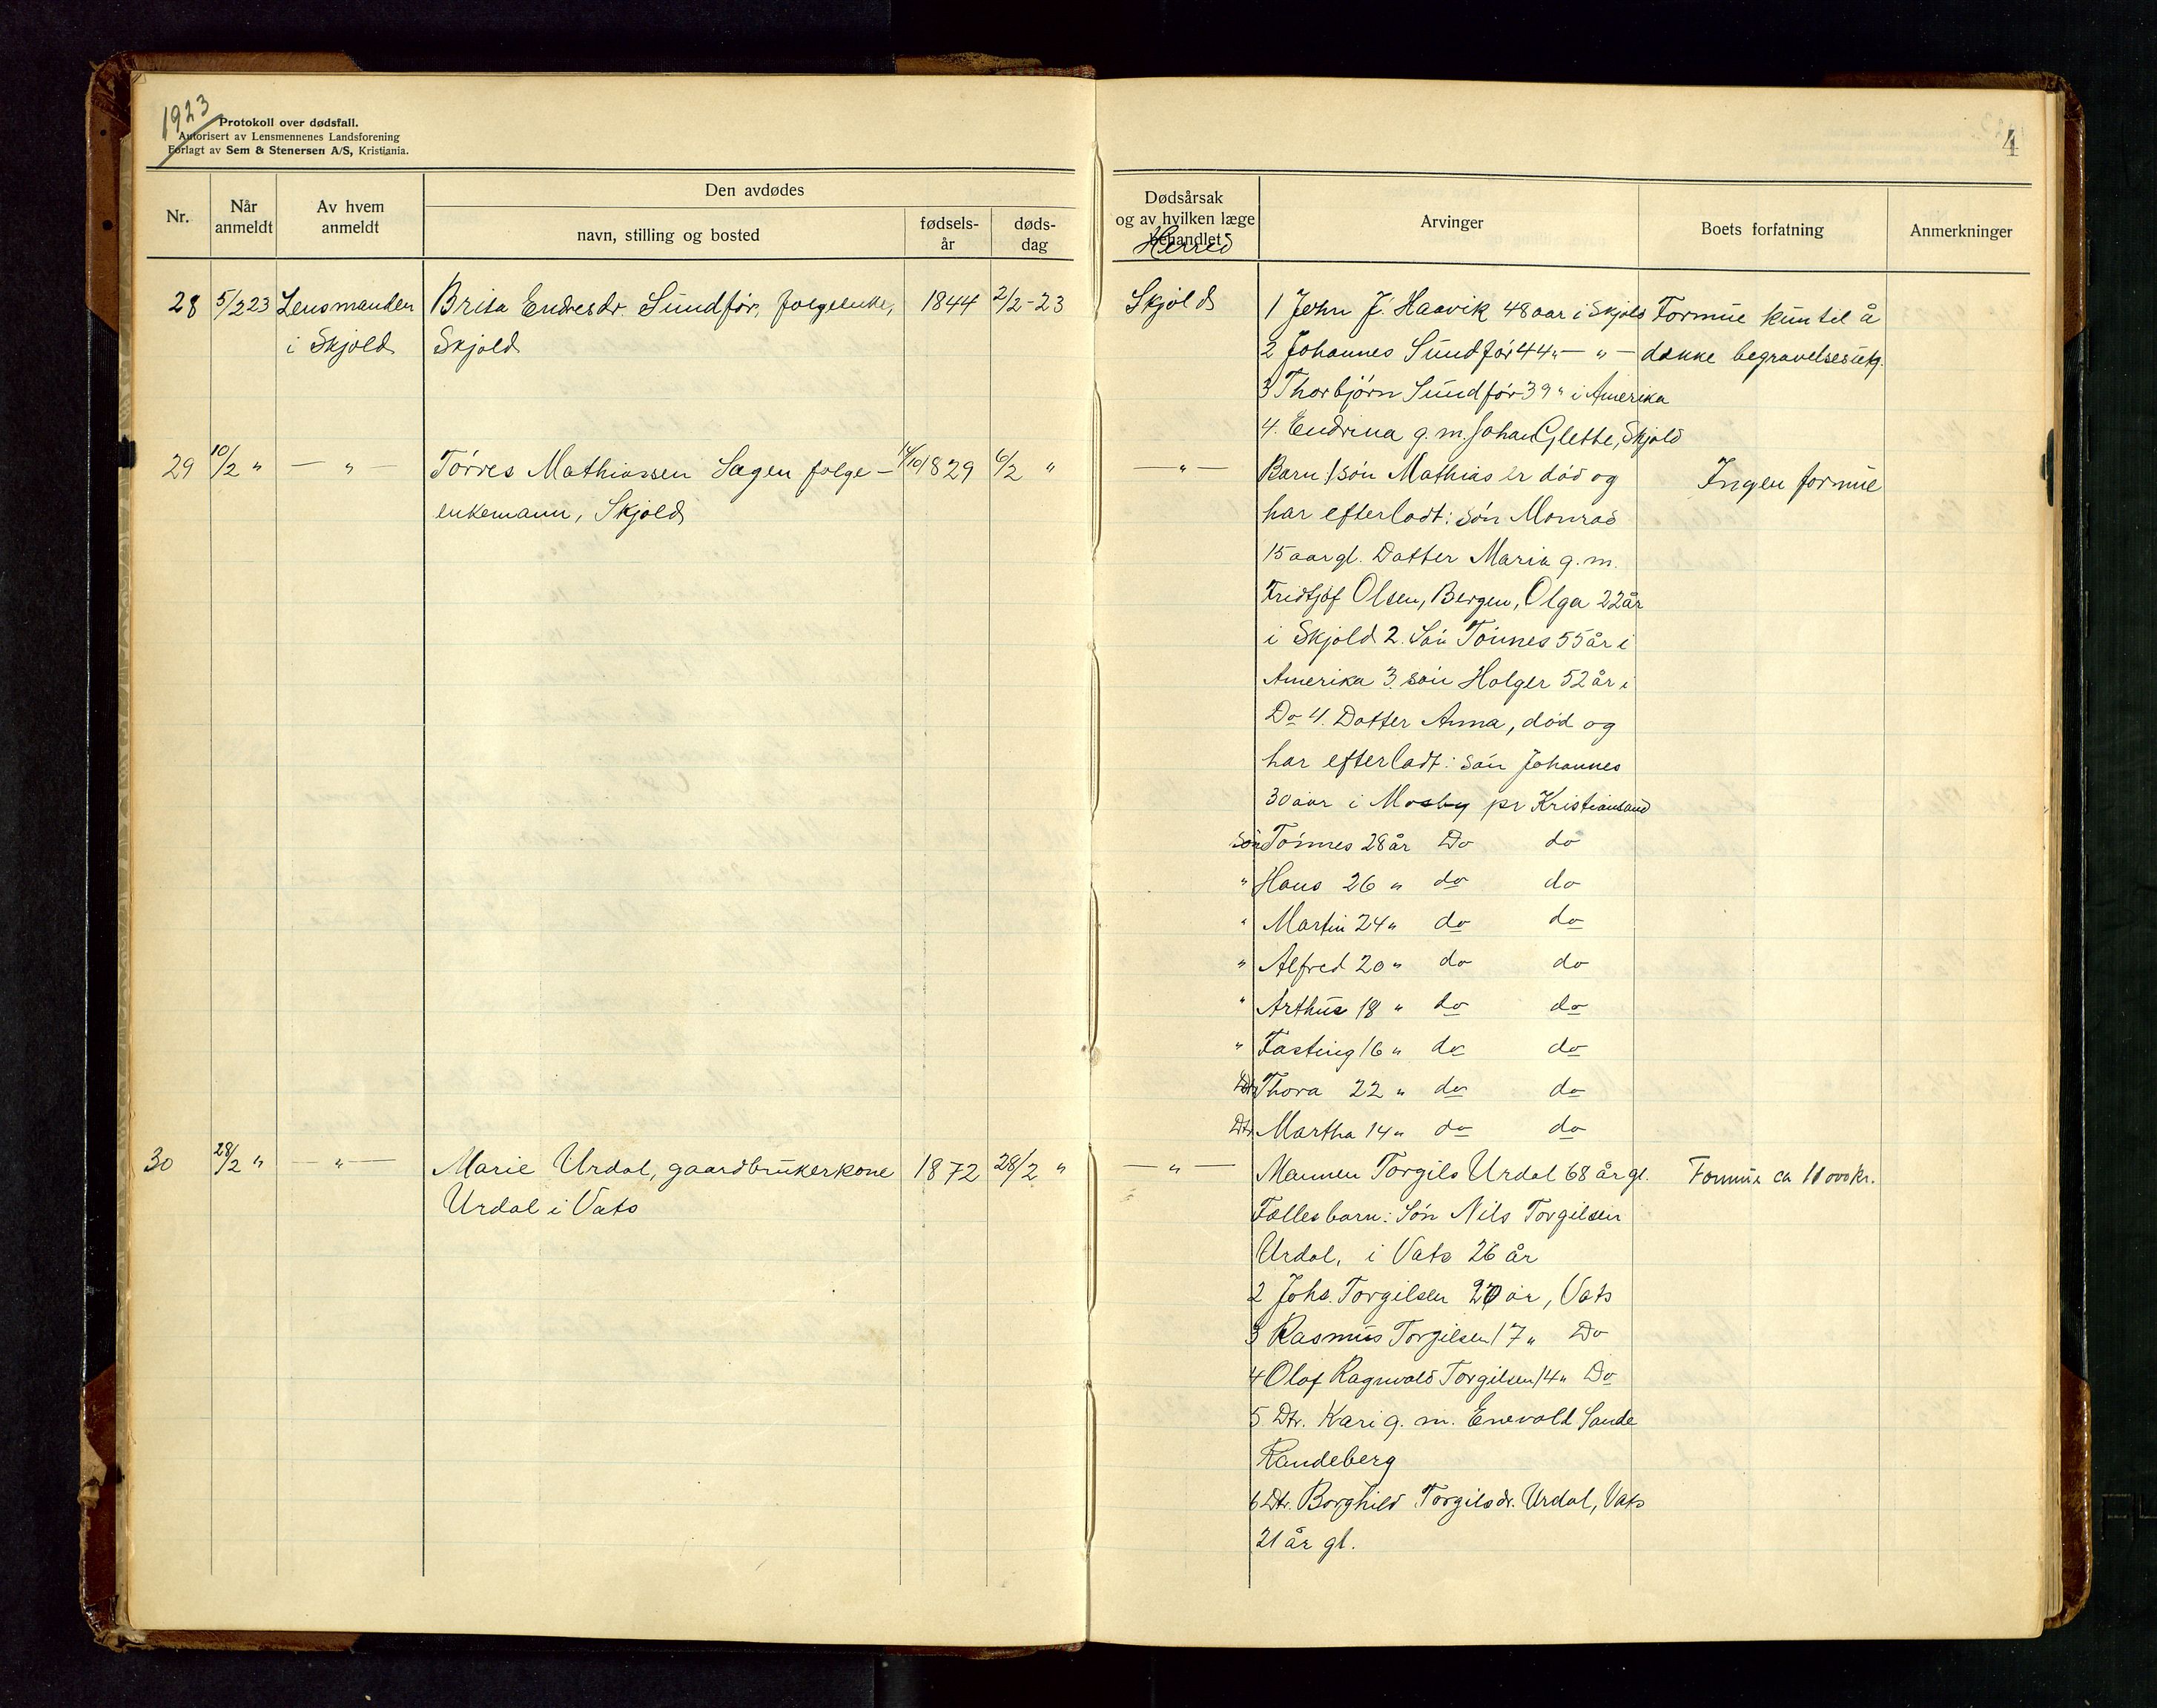 1923
Protokoll over dødsfall.
Autorisert av Lensmennenes Landsforening
Forlagt av Sem & Stenersen A/S, Kristiania.
4
Nr.
Når anmeldt
Av hvem anmeldt
Den avdødes
navn, stilling og bosted
fødselsår
dødsdag
Dødsårsak
og av hvilken læge
behandlet
Herred
Arvinger
Boets forfatning
Anmerkninger
28 5/2 23 Lensmanden Brita Endresdr. Sundför, folgeenke, 1844 2/2-23 Skjold
i Skjold Skjold
1 John J. Haavik 48 aar i Skjold Formue kun til å
2 Johannes Sundför 44 " — " — dække begravelsesutg.
3 Thorbjörn Sundför 39 " i Amerika
4. Endrina g. m. Johan Glette, Skjold
29 10/2 " — " — Törres Mathiassen Sagen folge- 14/10 1829 6/2 " — " —
enkemann, Skjold
Barn: 1 sön Mathias er död og Ingen formue
har efterladt: sön Monrad
15 aar gl. Datter Maria g. m.
Fridtjof Olsen, Bergen, Olga 22 år
i Skjold 2. Sön Tönnes 55 år i
Amerika 3. sön Holger 52 år i
Do 4. Datter Anna, död og
har efterladt: sön Johannes
30 aar i Mosby pr Kristiansand
Sön Tönnes 28 år Do do
" Hans 26 " do do
" Martin 24 " do do
" Alfred 20 " do do
" Arthur 18 " do do
" Fasting 16 " do do
Dtr Thora 22 " do do
Dtr. Martha 14 " do do
30 28/2 " — " — Marie Urdal, gaardbrukerkone 1872 28/2 " — " —
Urdal i Vats
Mannen Torgils Urdal 68 år gl. Formue ca 11 000 kr.
Fællesbarn: Sön Nils Torgilsen
Urdal, i Vats 26 år
2 Johs. Torgilsen 20 år, Vats
3 Rasmus Torgilsen 17 " Do
4 Olaf Ragnvald Torgilsen 14 " Do
5 Dtr. Kari g. m. Enevold Sande
Randeberg
6 Dtr. Borghild Torgilsdr. Urdal, Vats
21 år gl.